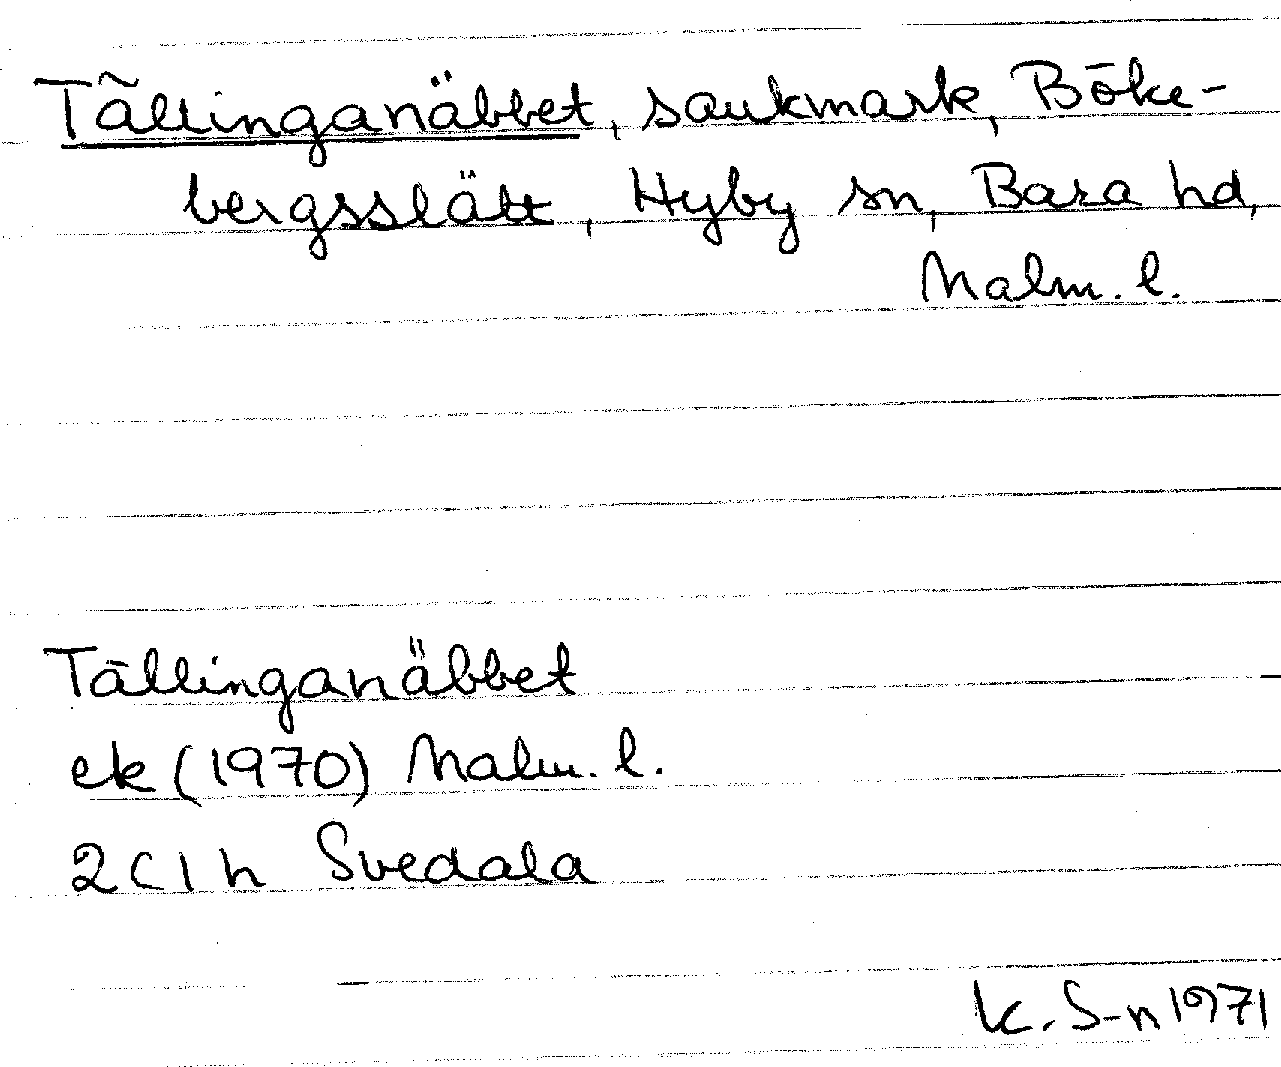 Tãllinganäbbet, sankmark, Böke-
bergsslätt, Hyby sn, Bara hd,
Malm. l.
Tāllinganäbbet
ek (1970) Malm. l.
2C1h Svedala
K. S-n 1971